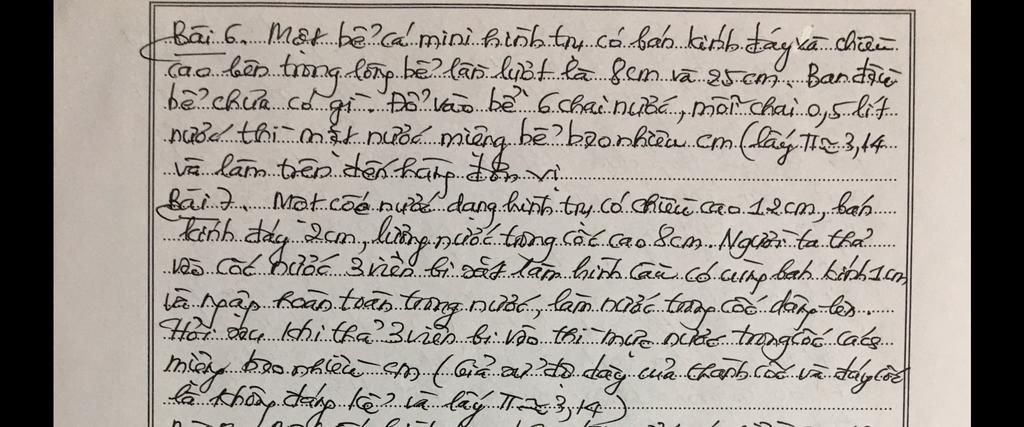 Bài 6. Một bể cá mini hình trụ có bán kính đáy và chiều
cao bên trong lòng bể lần lượt là 8cm và 25cm. Ban đầu
bể chưa có gì. Đổ vào bể 6 chai nước, mỗi chai 0,5 lít
nước thì mặt nước miệng bể bao nhiêu cm (lấy π ≈ 3,14
và làm tròn đến hàng đơn vị
Bài 7. Một cốc nước dạng hình trụ có chiều cao 12cm, bán
kính đáy 2cm, lượng nước trong cốc cao 8cm. Người ta thả
vào cốc nước 3 viên bi sắt làm hình cầu có cùng bán kính 1cm
và ngập hoàn toàn trong nước, làm nước trong cốc dâng lên.
Hỏi sau khi thả 3 viên bi vào thì mực nước trong cốc cách
miệng bao nhiêu cm (Giả sử độ dày của thành cốc và đáy cốc
là không đáng kể và lấy π ≈ 3,14)